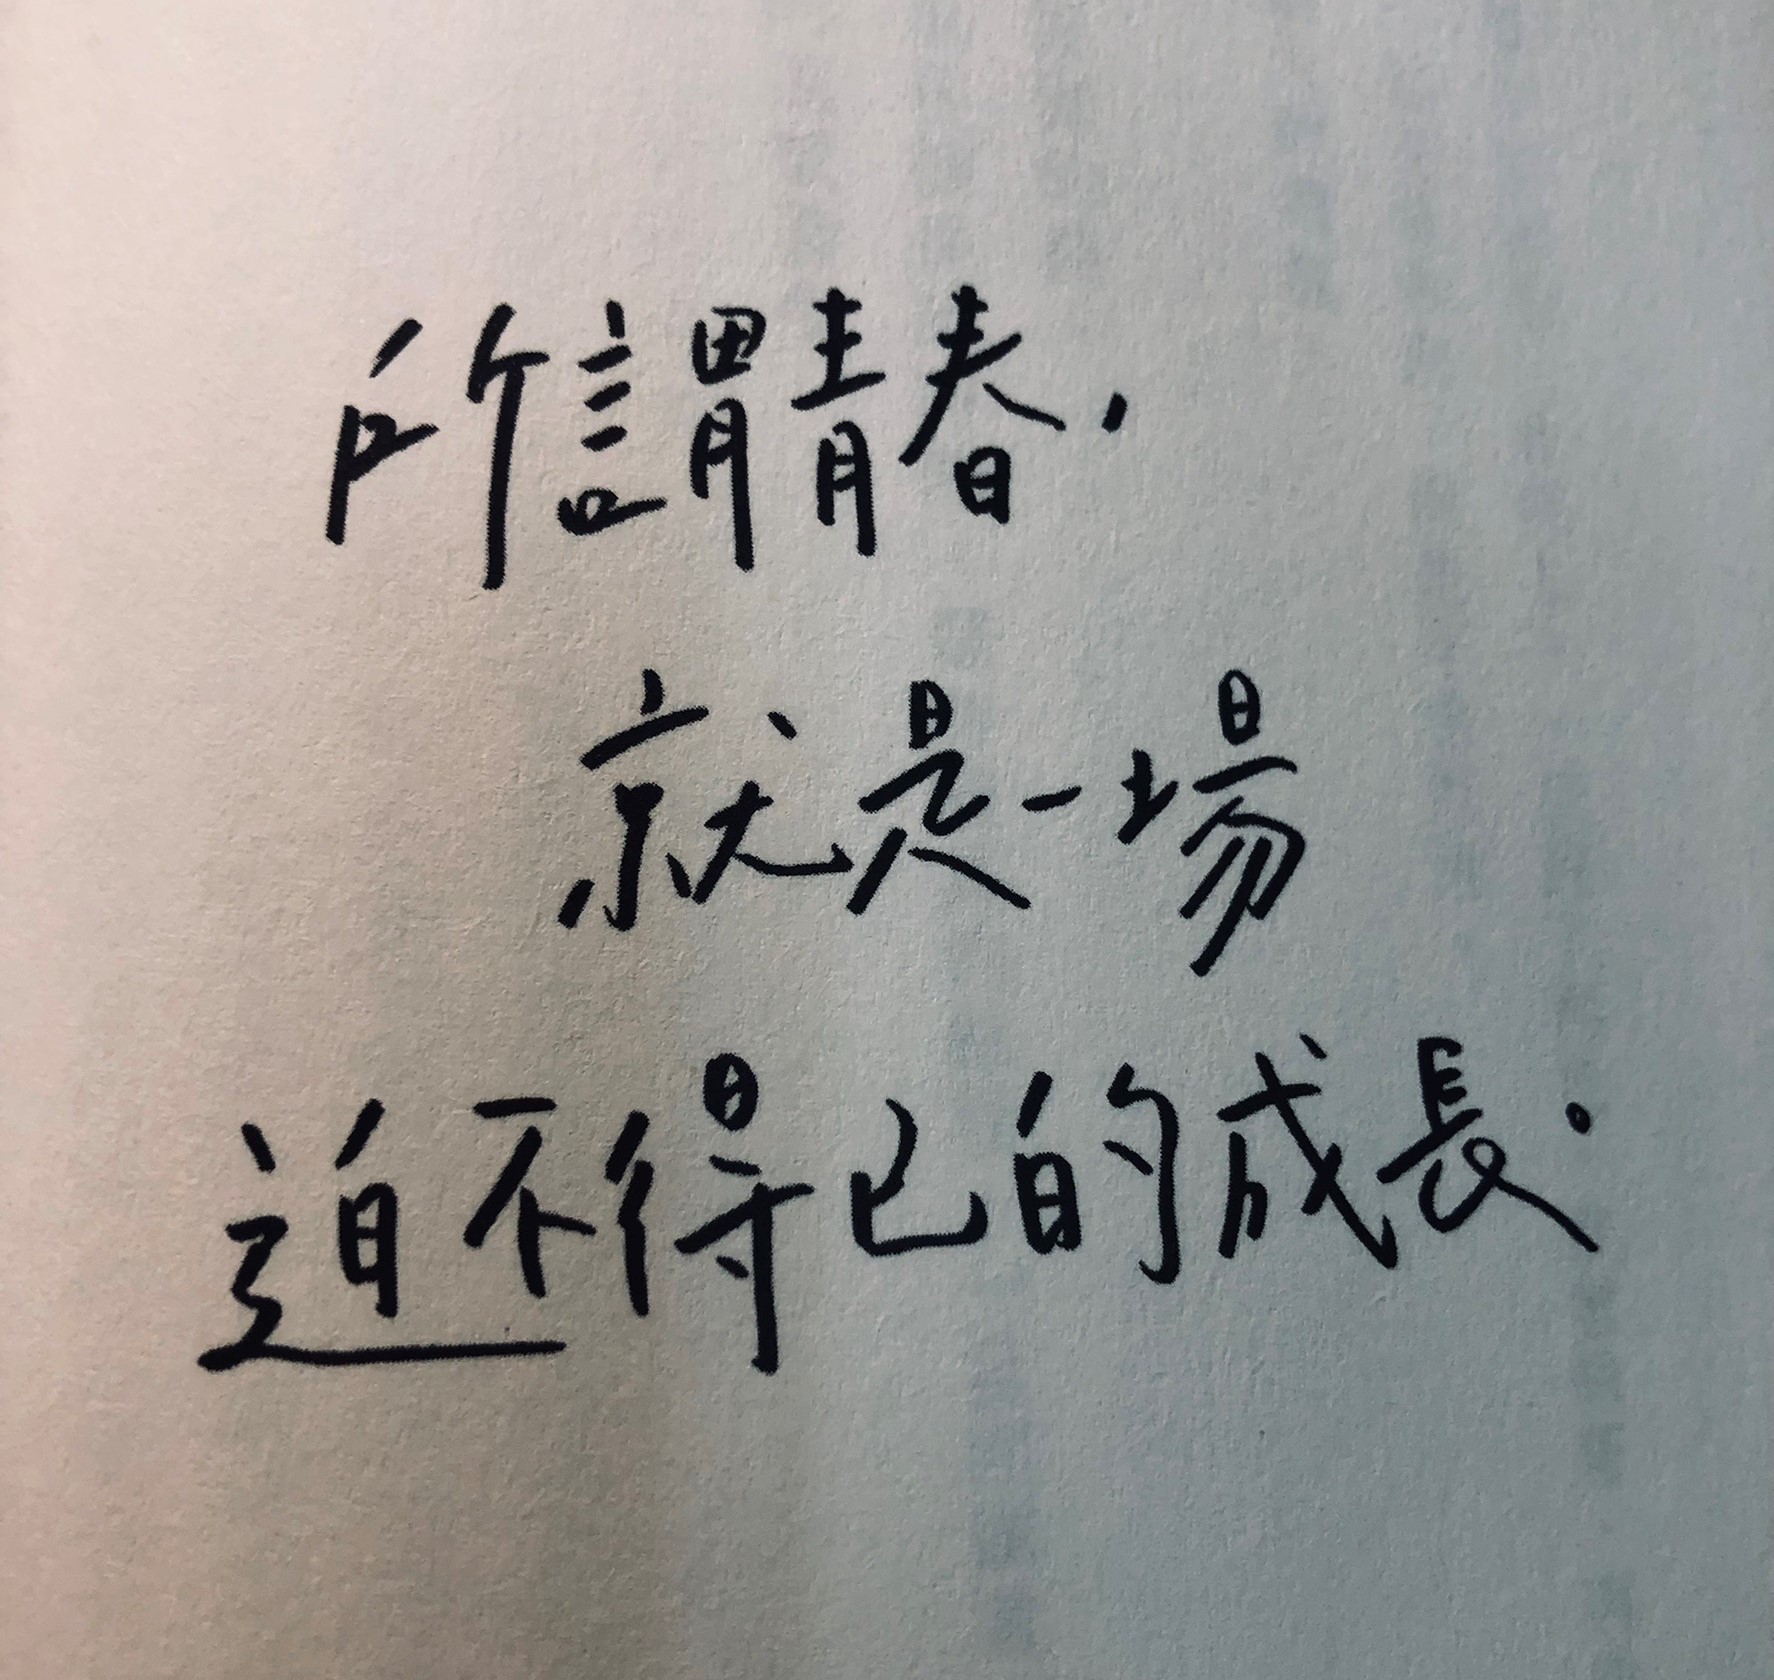 所謂青春,
就是一場
迫不得已的成長.